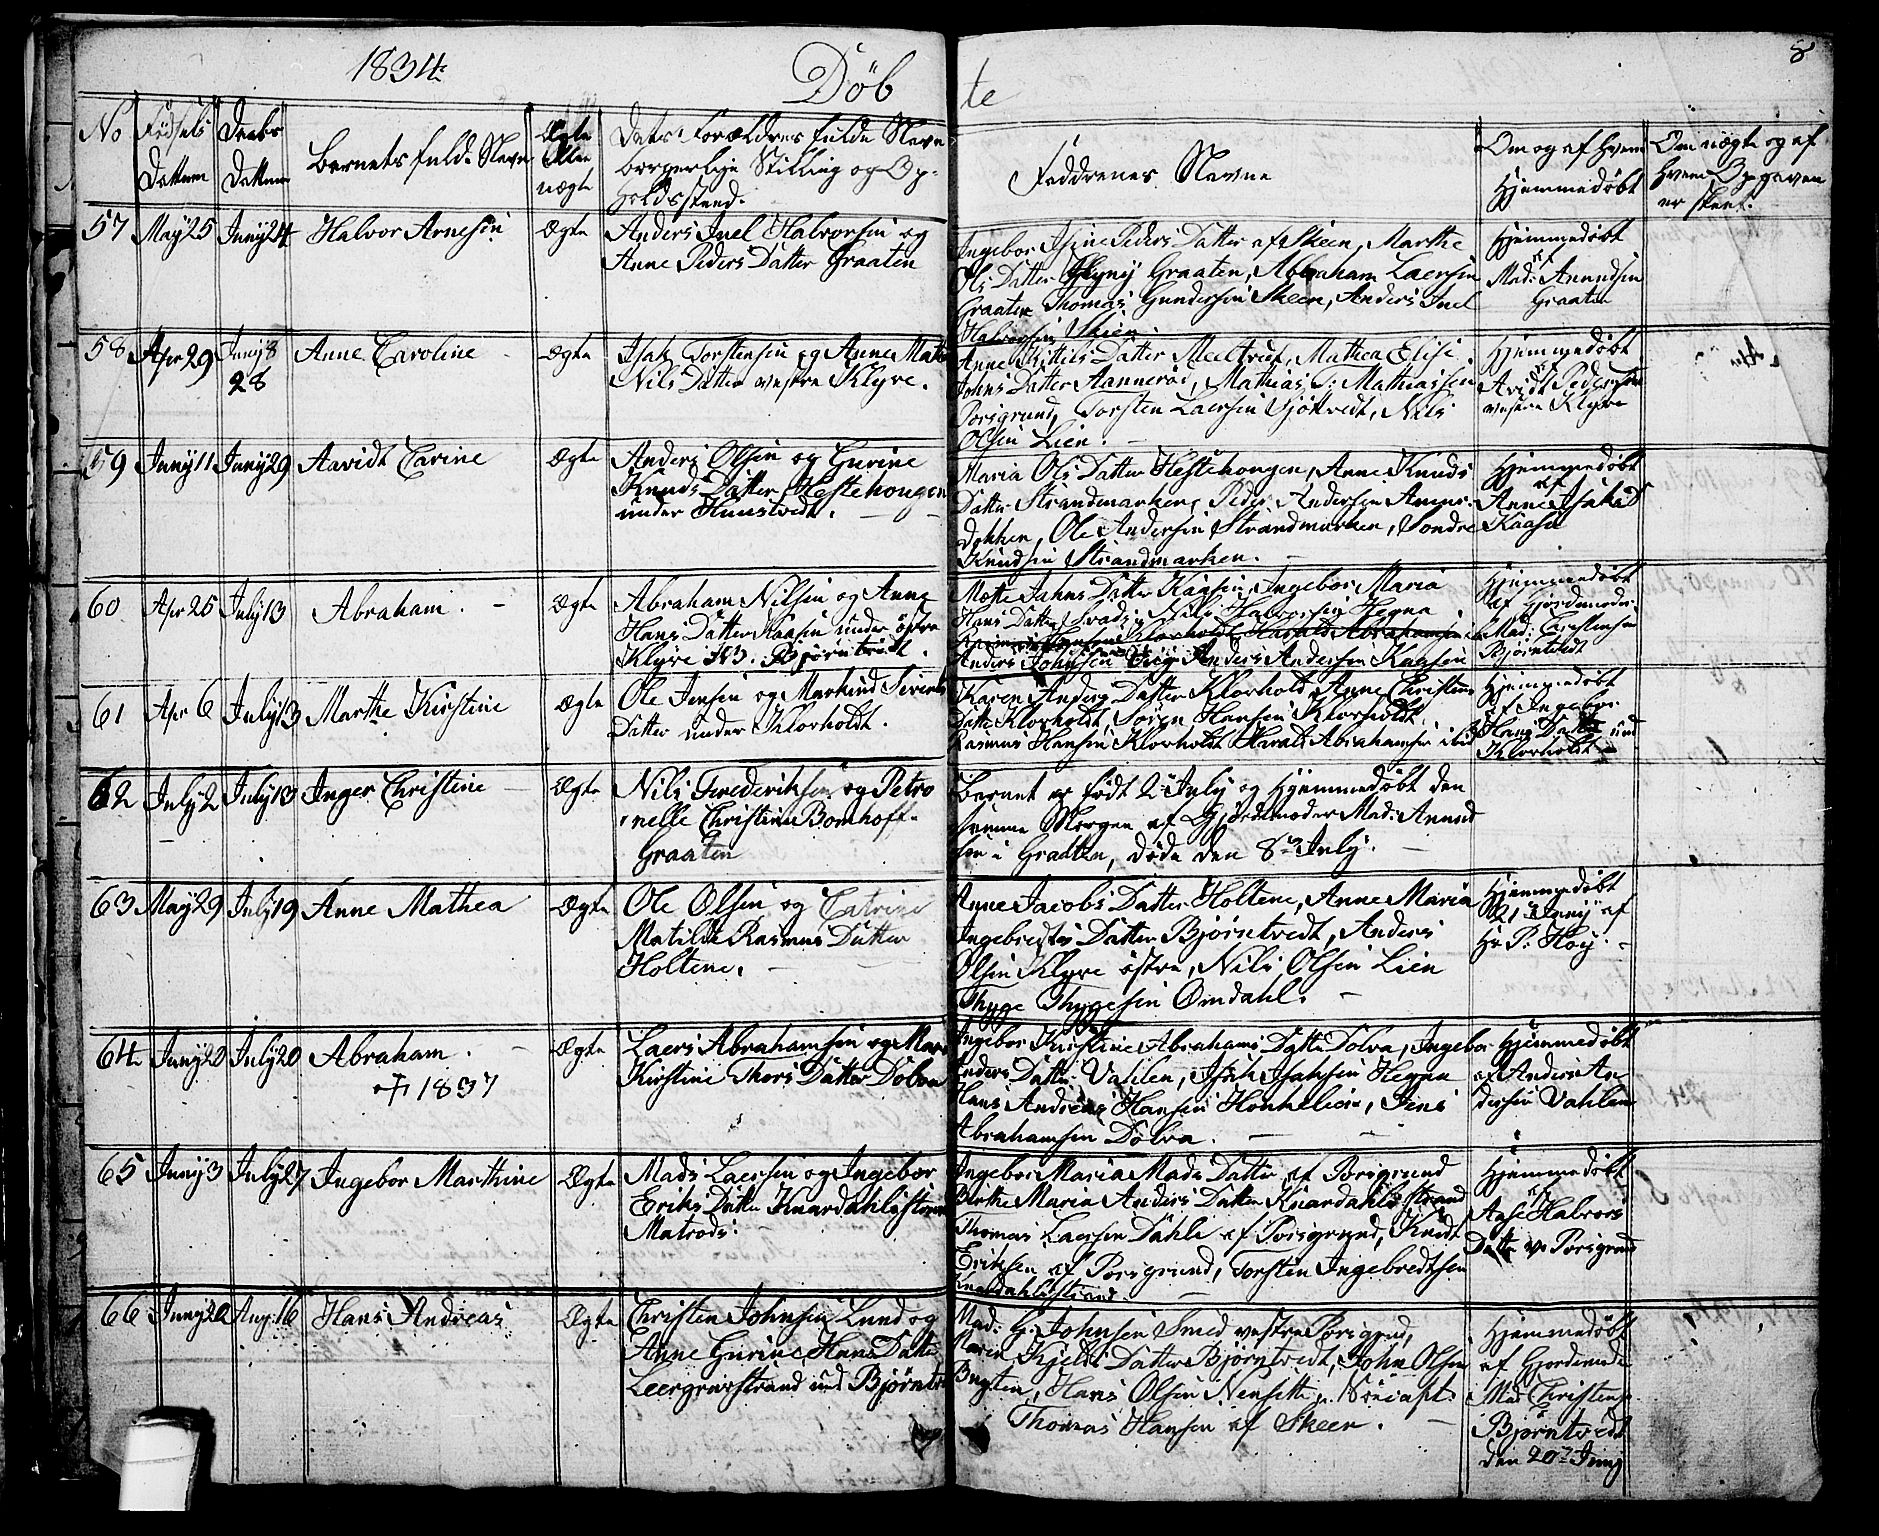 1834
Døbte
8
No
Fødsels Dattum
Daabs Dattum
Barnets fulde Navn
Ægte Eller uægte
Dets Forældres fulde Navn
borgerlige Stilling og Op-
holdssted.
Faddrenes Navne
Om og af hvem
Hjemmedøbt
Om uægte og af
hvem Opgaven
er skeet.
57 May 25 Juny 24 Halvor Arnesin Ægte
Anders Juel Halvorsin og
Anne Peders Datter Graaten
Ingebor Peders Datter af Skeen, Marthe
Ols Datter Graaten, Abraham Laersin
Graaten Thomas Gundersin Skeen, Anders Juel
Halvorsin Skien.
Hjemmedøbt
af
Mad: Annundsin
Graaten
58 Apr 29 Juny 8 Anne Caroline Ægte
28
Isak Torstensin og Anne
Nils Datter vestre Klyve.
Anne Kittils Datter Meeltvedt, Mathea Elise
Johns Datter Aannerød, Mathias T: Mathiassen
Porsgrund, Torsten Laersin, Nils
Olsin Lien.
Hjemmedøbt
af
Aridt Pedersen
vestre Klyve
59 Juny 11 Juny 29 Aavidt Carine Ægte
Anders Olsin og Gurine
Knuds Datter Hestehougen
under
Maria Ols Datter Hestehougen, Anne Knuds
Datter Strandmarken, Peder Andersen
dokken, Ole Andersin Strandmarken, Sondre
Knudsin Strandmarken.
Hjemmedøbt
af
Anne Isaks D
Kaasa
60 Apr 25 July 13 Abraham. Ægte
Abraham Nilsin og Anne
Hans Datter Kaasin under østre
Klyve
Mette Jahns Datter Kaasin, Ingebor Maria
Hans Datter, Nils Halvorsin Hegna
Klovholdt Harald Abrahamsen
Anders Johnsen Anders Andersen Kaasin
Hjemmedøbt
af Gjordemoder
Mad: Christensen
Bjørntvedt
61 Apr 6 July 13 Marthe Kirstine Ægte
Ole Jensin og Sivert
Datter under Klovholdt.
Karen Anders Datter Klovholdt, Anne Christens
Datter Klovholdt, Søren Hansin Klovholdt
Rasmus Hansin Klovholdt Harald Abrahamsen ibid
Hjemmedøbt
af Ingebor
Hans Datter und
Klovholdt
62 July 2 July 13 Inger Christine Ægte
Nils Frederiksin og Petro
nelle Christine Bomhoff
Graaten
Barnet er født 2 July og hjemmedøbt den
samme Morgen af Gjordemoder Mad: Annund
sen i Graaten, døde den 8de July.
63 May 29 July 19 Anne Mathea Ægte
Ole Olsin og Catrine
Matilde Rasmus Datter
Holtene.
Anne Jacobs Datter Holtene, Anne Maria
Ingebredts Datter Bjørntvedt, Anders
Olsin Klyve østre, Nils Olsin Lien
Thyge Thygesin Omdahl.
Hjemmedøbt
21de Juny af
Hr P. Høy.
64 Juny 20 July 20 Abraham. Ægte
1837
Laers Abrahamsin og Maren
Kirstine Thors Datter Dolva
Ingebor Kirstine Abrahams Datter Dolva, Ingebor
Anders Datter Vahlen, Isak Isaksin Hegna
Hans Andreas Hansin, Jens
Abrahamsin Dolva.
Hjemmedøbt
af Anders An
dersin Vahlen
65 Juny 3 July 27 Ingebor Marthine Ægte
Mads Laersin og Ingebor
Eriks Datter Knardahlsstrand
Matrods:
Ingebor Maria Mads Datter af Porsgrund
Berthe Maria Anders Datter Knardahlsstrand
Thomas Laersen Dahli af Porsgrund, Knud
Eriksen af Porsgrund, Torsten Ingebredtsen
Knardahlsstrand.
Hjemmedøbt
af
Halvors
Datter v. Porsgrund
66 Juny 20 Aug: 16 Hans Andreas Ægte
Christen Johnsin Lund og
Anne Gurine Hans Datter
Leergravstrand und Bjørntvedt
Mad: G: Johnsen Smed vestre Porsgrund,
Maren Kjelds Datter Bjørntvedt, John Olsen
Hans Olsen
Thomas Hansen af Skeen.
Hjemmedøbt
af Gjordemoder
Mad: Christensen
Bjørntvedt
den 20de Juny